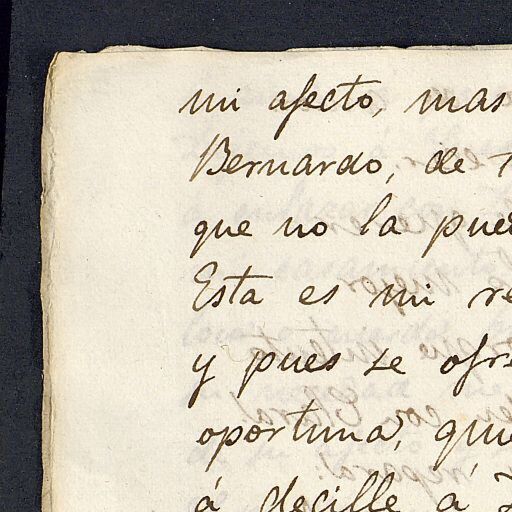 mi afecto, mas
Bernardo, de
que no la pue
Esta es mi re
y pues se ofre
oportuna, qui
á decille á